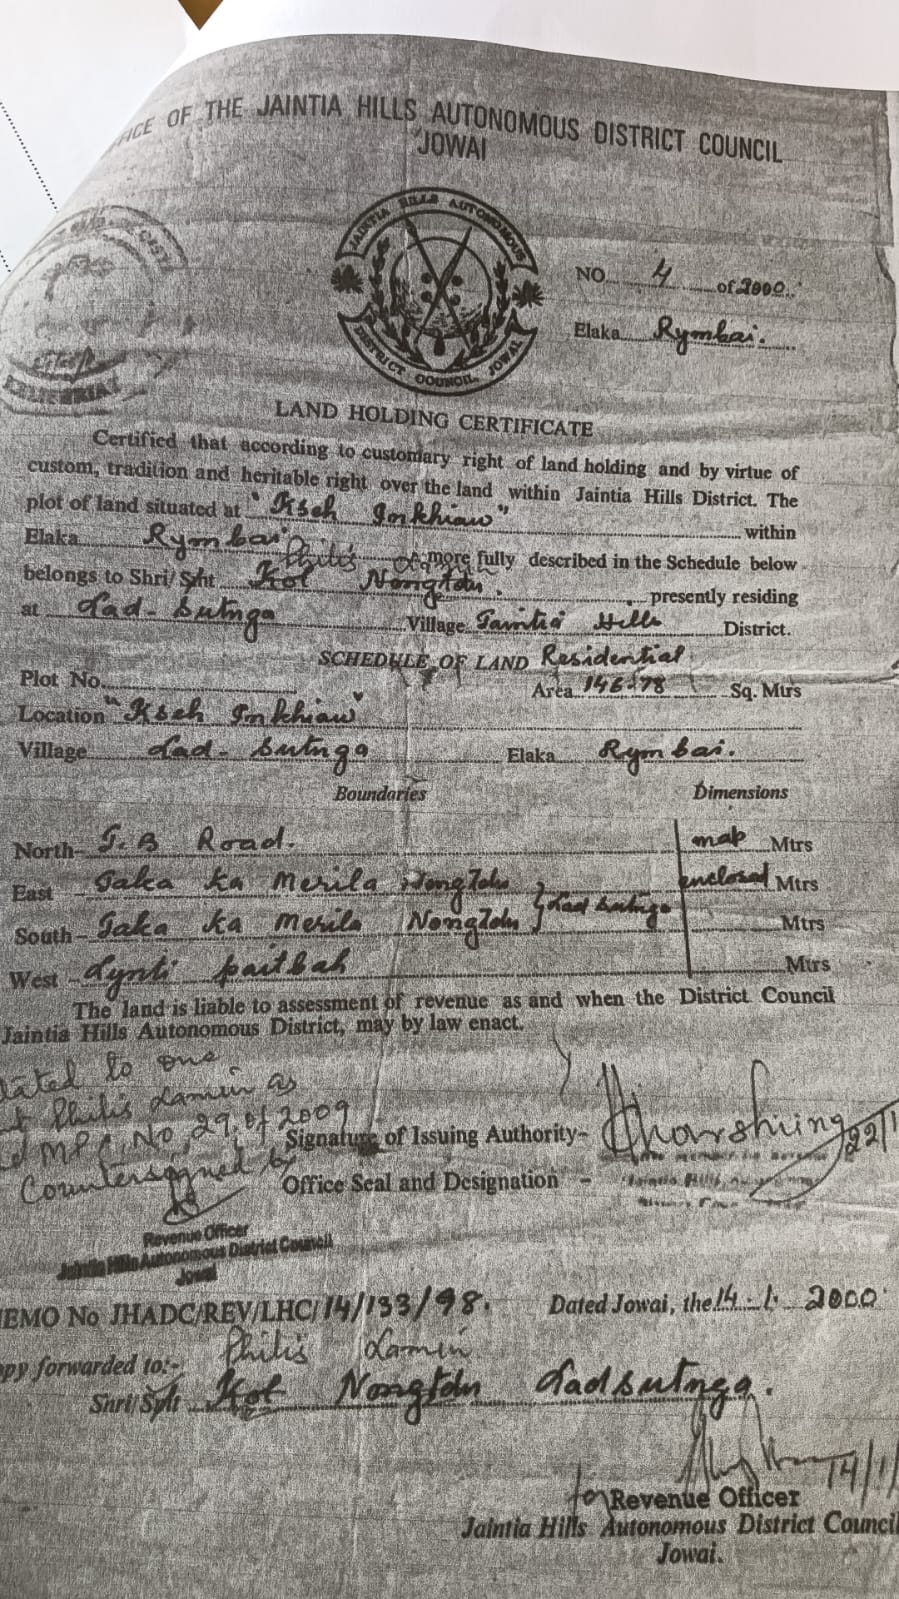 OF THE JAINTIA HILLS AUTONOMOUS DISTRICT COUNCIL
JOWAI
JAINTIA HILLS AUTONOMOUS
DISTRICT COUNCIL JOWAI
NO 4 of 2000.
Elaka Rymbai.
LAND HOLDING CERTIFICATE
Certified that according to customary right of land holding and by virtue of
custom, tradition and heritable right over the land within Jaintia Hills District. The
plot of land situated at "Kseh Iorkhiaw" within
Elaka Rymbai more fully described in the Schedule below
Philis
belongs to Shri/Smt Kot Nongtdu. presently residing
at Lad-Sutnga Village Jaintia Hills District.
SCHEDULE OF LAND Residential
Plot No. Area 146.78 Sq. Mtrs
Location "Kseh Iorkhiaw"
Village Lad-Sutnga Elaka Rymbai.
Boundaries Dimensions
North- J.B Road. map Mtrs
East Jaka ka Merila Nongtdu enclosed Mtrs
Lad Sutnga
South- Jaka ka Merila Nongtdu Mtrs
West - Lynti paitbah Mtrs
The land is liable to assessment of revenue as and when the District Council
Jaintia Hills Autonomous District, may by law enact.
to one
Philis Lamin as
No 29 of 2009
Signature of Issuing Authority-
Countersigned by
Office Seal and Designation -
Revenue Officer
Jaintia Hills Autonomous District Council
Jowai
EMO No JHADC/REV/LHC/14/133/98. Dated Jowai, the 14.1.2000
Philis Lamin
py forwarded to:-
Shri/Smt Kot Nongtdu Ladsutnga.
14/1/
for Revenue Officer
Jaintia Hills Autonomous District Council
Jowai.